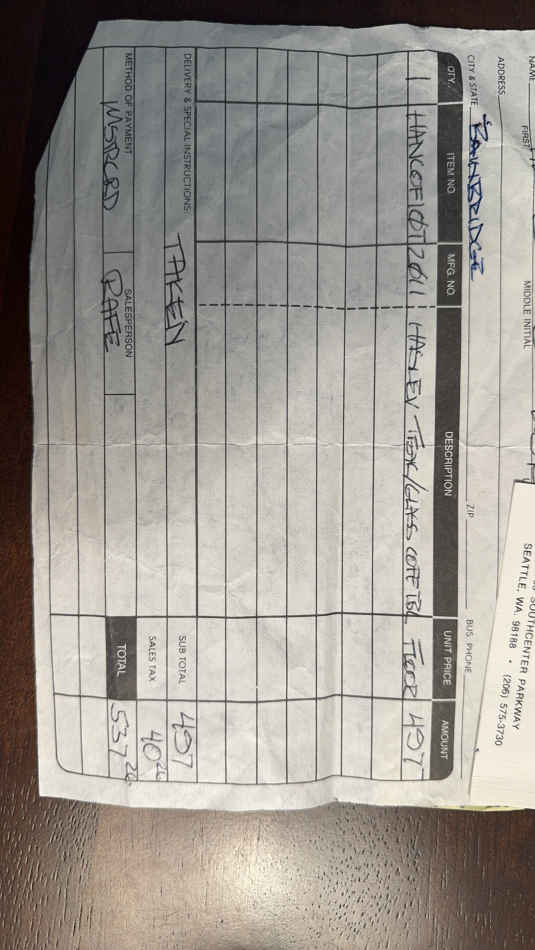 NAME
FIRST
MIDDLE INITIAL
SOUTHCENTER PARKWAY
SEATTLE, WA. 98188 • (206) 575-3730
ADDRESS
CITY & STATE BAINBRIDGE ZIP BUS. PHONE
QTY. ITEM NO. MFG. NO. DESCRIPTION UNIT PRICE AMOUNT
1 HANCOFLOOT2011 HASLEV TEAK/GLASS COFFE TBL FLOOR 497
DELIVERY & SPECIAL INSTRUCTIONS: SUB TOTAL 497
TAKEN
SALES TAX 40 26
METHOD OF PAYMENT SALESPERSON TOTAL 537 26
MSTRCRD RAFE